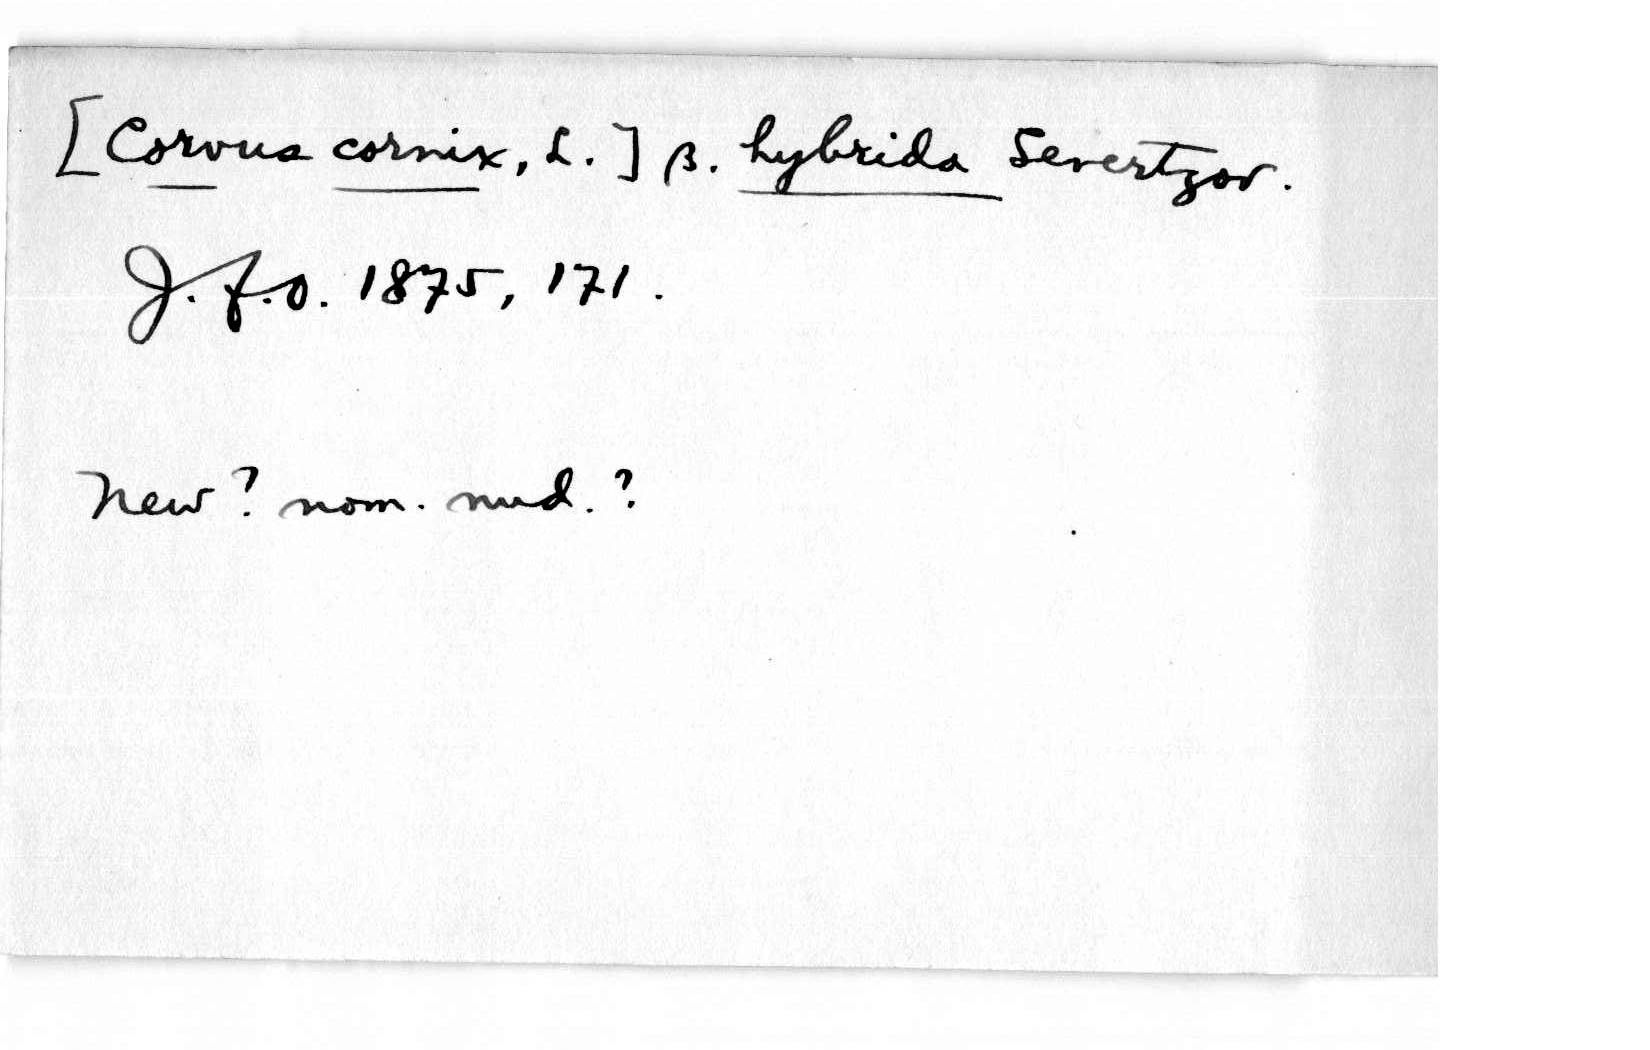 [Corvus cornix, L.] β. hybrida Severtzov.
J.f.O. 1875, 171.
New? nom. nud.?